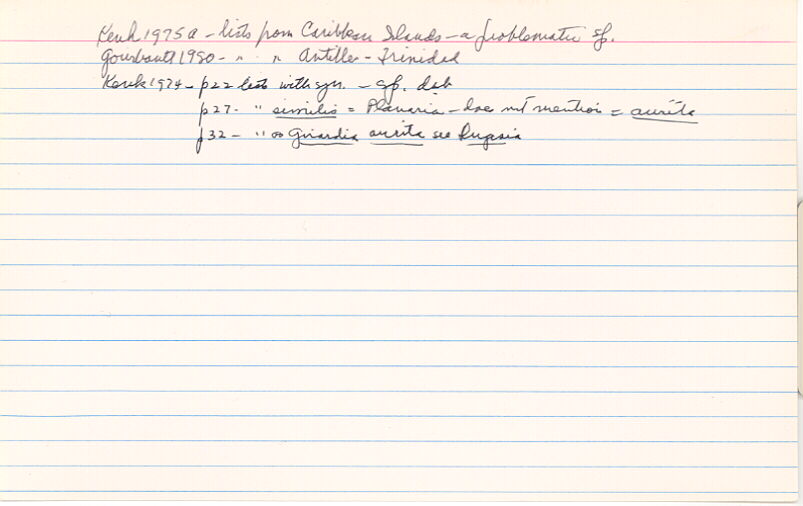 Kenk 1975a - lists from Caribbean Islands - a problematic sp.
Gourbault 1980 - " " " Antilles - Trinidad
Kenk 1974 - p22 lists with syn. - sp. dub
p27 - " similis = Planaria - doe not mention = aurita
p32 - " as Girardia aurita see Dugesia